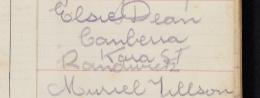 Elsie Dean
Canberra
Kara St
Randwick
Muriel Tillson